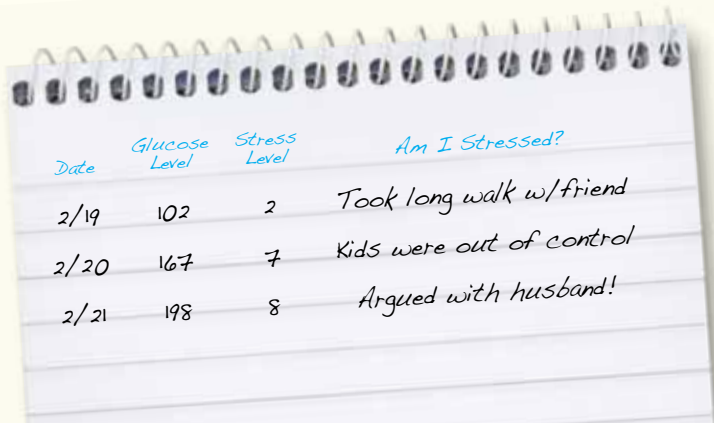 Date Glucose Level Stress Level Am I Stressed?
2/19 102 2 Took long walk w/friend
2/20 167 7 Kids were out of control
2/21 198 8 Argued with husband!